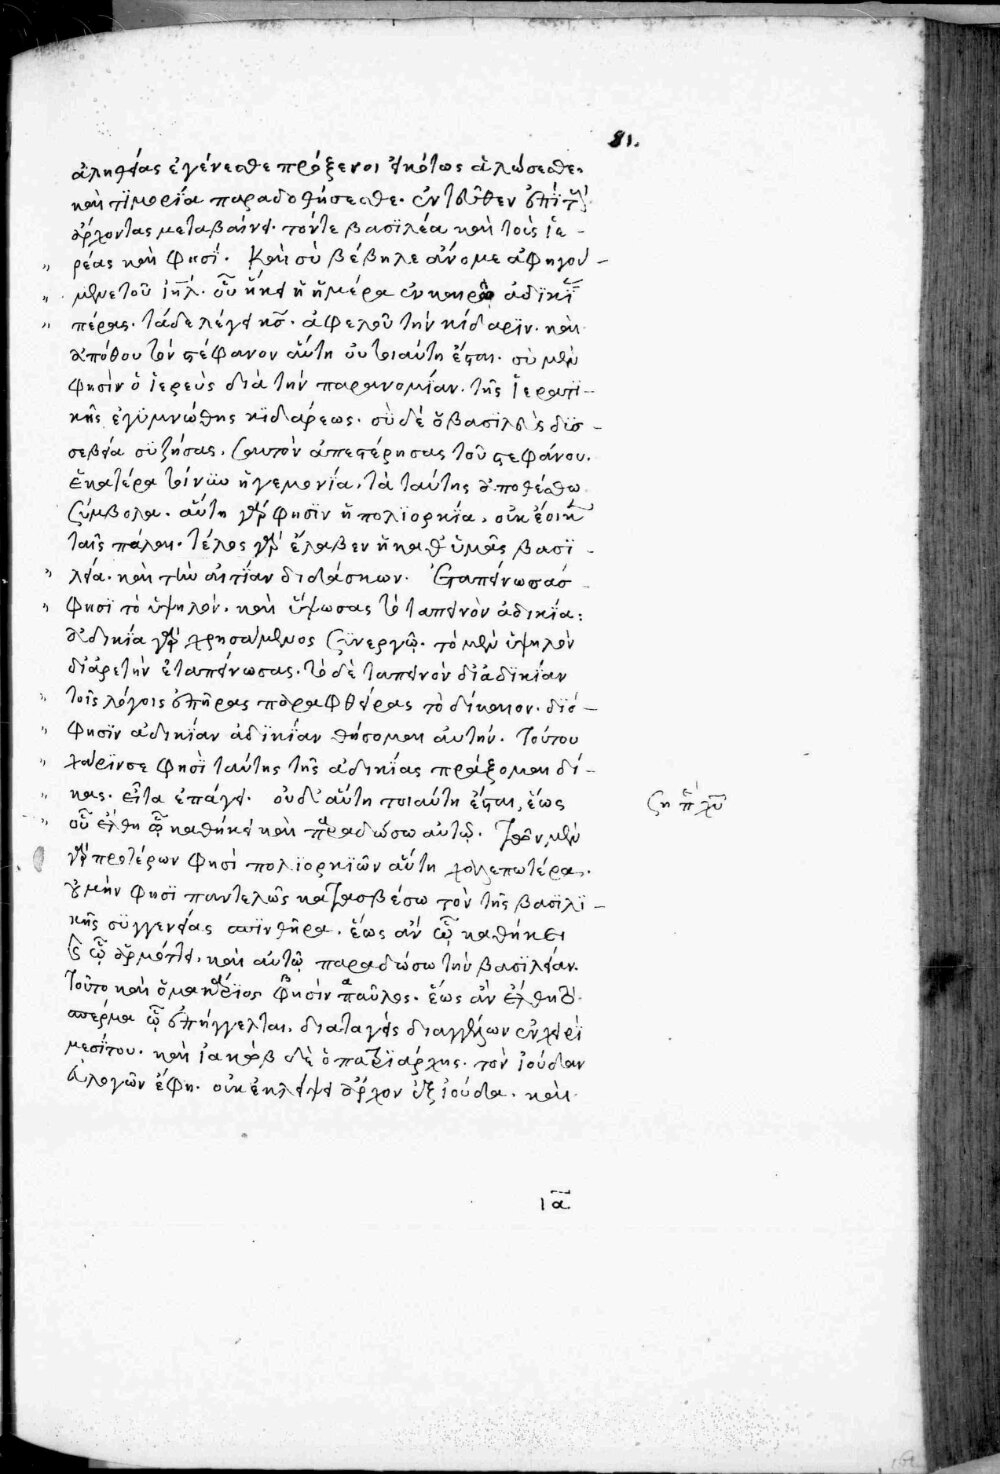 81.
ἀληθείας ἐγένεσθε πρόξενοι εἰκότως ἁλώσεσθε.
καὶ τϊμορΐα παραδοθήσεσθε. ἐντεῦθεν ἐπῒ τοὺς
ἄρχοντας μεταβαίνει. τόντε βασϊλέα καὶ τοὶς ἱε -
„ ρέας καὶ φησΐ. Καὶ σὺ βέβηλε ἄνομε ἀφηγού -
„ μενε τοῦ ιηλ. οὗ ἥκει ἡ ἡμέρα ἐν καιρῶ ἀδϊκΐας
„ πέρας. τάδε λέγει κς. ἀφελοῦ τὴν κίδαρϊν. καὶ
ἀπόθου τὸν στέφανον αὕτη οὐ τοιαύτη ἔσται. σὺ μὲν
φησὶν ὁ ἱερεὺς διὰ τὴν παρανομίαν. τῆς ἱερατϊ -
κῆς ἐγϋμνώθης κϊδάρεως. σὺ δέ ὁ βασϊλεὺς δϋσ -
σεβεία συζήσας. σαυτὸν ἀπεστέρησας τοῦ στεφάνου.
ἑκατέρα τοίνϋν ἡγεμονία. τὰ ταύτης ἀποθέσθω
σύμβολα. αὕτη γὰρ φησῒν ἡ πολϊορκΐα. οὐκ ἔοικε
ταῖς πάλαι. τέλος γὰρ ἔλαβεν ἡ καθ' ὑμᾶς βασϊ -
„ λεία. καὶ τὴν αἰτΐαν διδάσκων. Ἐταπείνωσας
„ φησῒ τὸ ὑψηλὸν. καὶ ὕψωσας τὸ ταπεινὸν ἀδικΐα:
ἀδικία γὰρ χρησάμενος συνεργῷ. τὸ μὲν ὑψηλὸν
δι' ἀρετὴν ἐταπείνωσας. τὸ δὲ ταπεινὸν δι' ἀδϊκίαν
„ τοῖς λόγοις ἐπῆρας παραφθείρας τὸ δίκαιον. διό -
„ φησῒν ἀδικΐαν ἀδικΐαν θήσομαι αὐτήν. Τούτου
„ χάρϊν σε φησῒ ταύτης τῆς ἀδικίας πράξομαι δί -
„ κας. εἶτα ἐπάγει. οὐδ' αὕτη τοιαύτη ἔσται, ἕως
„ οὗ ἔλθη ᾧ καθήκει καὶ παραδώσω αὐτῷ. Τῶν μὲν
γὰρ προτέρων φησὶ πολϊορκϊῶν αὕτη χαλεπωτέρα.
οὐ μὴν φησϊ παντελῶς κατασβέσω τὸν τῆς βασϊλϊ -
κῆς συγγενείας σπϊνθῆρα. ἕως ἀν ᾧ καθήκει
ᾧ ἁρμόττει. καὶ αὐτῷ παραδώσω τὴν βασϊλείαν.
Τοῦτο καὶ ὁ μακάρϊος φησὶν παῦλος. ἕως ἀν ἔλθη τὸ
σπέρμα ᾧ ἐπήγγελται. διαταγεὶς δι' ἀγγέλων ἐν χειρῒ
μεσΐτου. καὶ ἰακὼβ δὲ ὁ πατρϊάρχης. τὸν ἰούδαν
εὐλογῶν ἔφη. οὐκ ἐκλείψει ἄρχον ἐξ ἰούδα. καὶ
ιᾱ